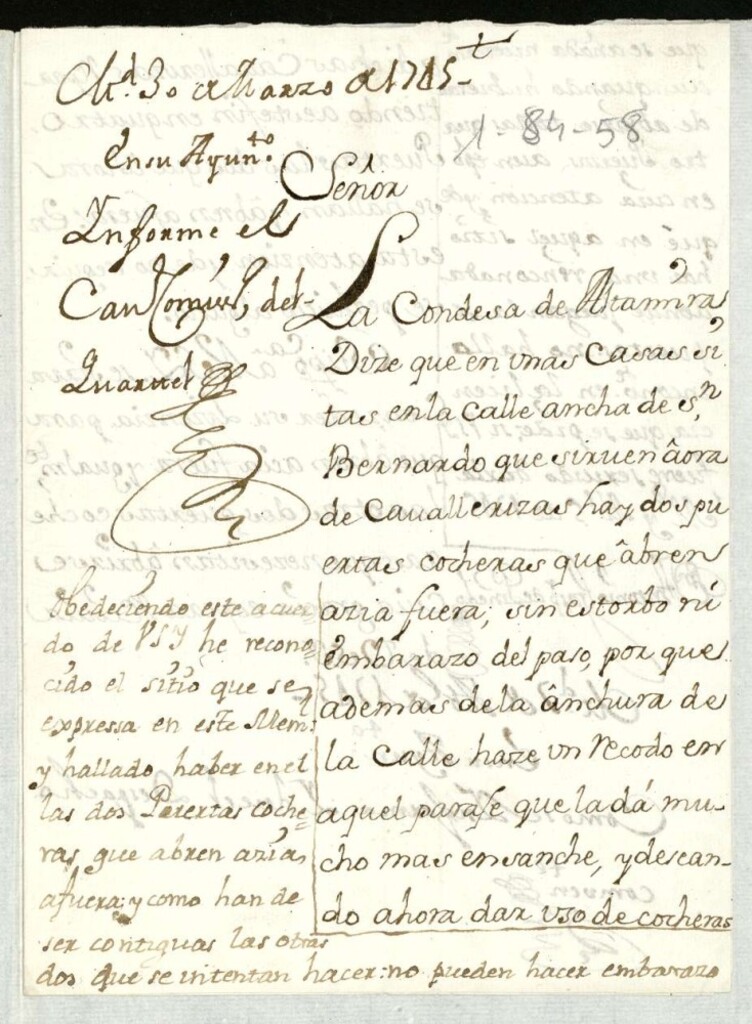 Md. 30 de Marzo de 1715
1-84-58
En su Ayunto.
Señor
Informe el
Cavº Comisº, del
Quartel
La Condesa de Altamira
Dize que en unas Casas si
tas en la Calle ancha de Sn
Bernardo que siruen âora
de Cauallerizas hay dos pu
ertas cocheras que âbren
azia fuera, sin estorbo ni
êmbarazo del paso, por que
ademas de la ânchura de
la Calle haze un recodo en
aquel paraje que la dá mu-
cho mas ensanche, y desean-
do ahora dar uso de cocheras
Obedeciendo este acuer
do de VSY he recono-
cido el sitio que se
expressa en este Mem:
y hallado haber en el
las dos Puertas coche-
ras que abren azia
afuera: y como han de
ser contiguas las otras
dos que se intentan hacer: no pueden hacer embarazo